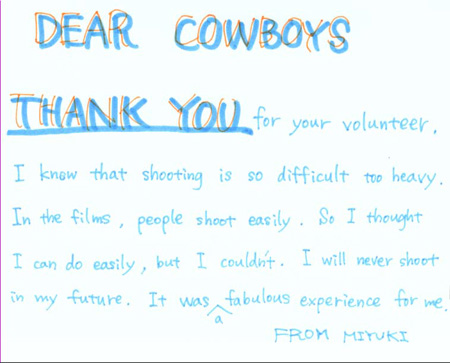 DEAR COWBOYS
THANK YOU for your volunteer.
I know that shooting is so difficult too heavy.
In the films, people shoot easily. So I thought
I can do easily, but I couldn't. I will never shoot
in my future. It was a fabulous experience for me!
FROM MIYUKI